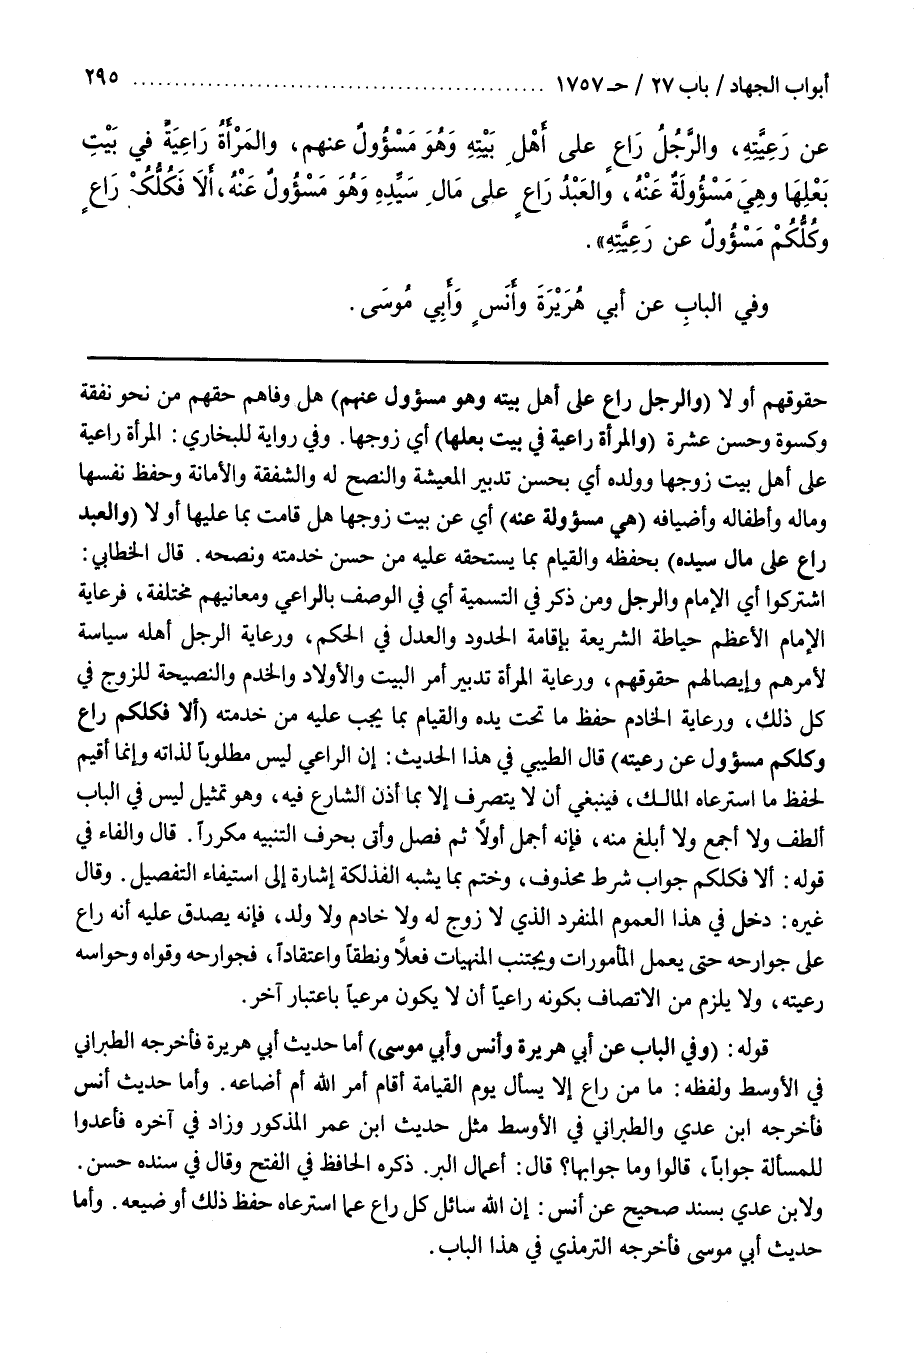 أبواب الجهاد / باب ٢٧ / حـ ١٧٥٧ ................................................ ٢٩٥
عن رَعِيَّتِهِ، والرَّجُلُ رَاعٍ على أَهْلِ بَيْتِهِ وَهُوَ مَسْؤُولٌ عنهم، والمَرْأَةُ رَاعِيَةٌ في بَيْتِ
بَعْلِهَا وهِيَ مَسْؤُولَةٌ عَنْهُ، والعَبْدُ رَاعٍ على مَالِ سَيِّدِهِ وَهُوَ مَسْؤُولٌ عَنْهُ، أَلَا فَكُلُّكُمْ رَاعٍ
وكُلُّكُمْ مَسْؤُولٌ عن رَعِيَّتِهِ».
وفي البابِ عن أبي هُرَيْرَةَ وأَنَسٍ وَأَبِي مُوسَى.
حقوقهم أو لا (والرجل راع على أهل بيته وهو مسؤول عنهم) هل وفاهم حقهم من نحو نفقة
وكسوة وحسن عشرة (والمرأة راعية في بيت بعلها) أي زوجها. وفي رواية للبخاري: المرأة راعية
على أهل بيت زوجها وولده أي بحسن تدبير المعيشة والنصح له والشفقة والأمانة وحفظ نفسها
وماله وأطفاله وأضيافه (هي مسؤولة عنه) أي عن بيت زوجها هل قامت بما عليها أو لا (والعبد
راع على مال سيده) بحفظه والقيام بما يستحقه عليه من حسن خدمته ونصحه. قال الخطابي:
اشتركوا أي الإمام والرجل ومن ذكر في التسمية أي في الوصف بالراعي ومعانيهم مختلفة، فرعاية
الإمام الأعظم حياطة الشريعة بإقامة الحدود والعدل في الحكم، ورعاية الرجل أهله سياسة
لأمرهم وإيصالهم حقوقهم، ورعاية المرأة تدبير أمر البيت والأولاد والخدم والنصيحة للزوج في
كل ذلك، ورعاية الخادم حفظ ما تحت يده والقيام بما يجب عليه من خدمته (ألا فكلكم راع
وكلكم مسؤول عن رعيته) قال الطيبي في هذا الحديث: إن الراعي ليس مطلوباً لذاته وإنما أقيم
لحفظ ما استرعاه المالك، فينبغي أن لا يتصرف إلا بما أذن الشارع فيه، وهو تمثيل ليس في الباب
ألطف ولا أجمع ولا أبلغ منه، فإنه أجمل أولاً ثم فصل وأتى بحرف التنبيه مكرراً. قال والفاء في
قوله: ألا فكلكم جواب شرط محذوف، وختم بما يشبه الفذلكة إشارة إلى استيفاء التفصيل. وقال
غيره: دخل في هذا العموم المنفرد الذي لا زوج له ولا خادم ولا ولد، فإنه يصدق عليه أنه راع
على جوارحه حتى يعمل المأمورات ويجتنب المنهيات فعلاً ونطقاً واعتقاداً، فجوارحه وقواه وحواسه
رعيته، ولا يلزم من الاتصاف بكونه راعياً أن لا يكون مرعياً باعتبار آخر.
قوله: (وفي الباب عن أبي هريرة وأنس وأبي موسى) أما حديث أبي هريرة فأخرجه الطبراني
في الأوسط ولفظه: ما من راع إلا يسأل يوم القيامة أقام أمر الله أم أضاعه. وأما حديث أنس
فأخرجه ابن عدي والطبراني في الأوسط مثل حديث ابن عمر المذكور وزاد في آخره فأعدوا
للمسألة جواباً، قالوا وما جوابها؟ قال: أعمال البر. ذكره الحافظ في الفتح وقال في سنده حسن.
ولابن عدي بسند صحيح عن أنس: إن الله سائل كل راع عما استرعاه حفظ ذلك أو ضيعه. وأما
حديث أبي موسى فأخرجه الترمذي في هذا الباب.